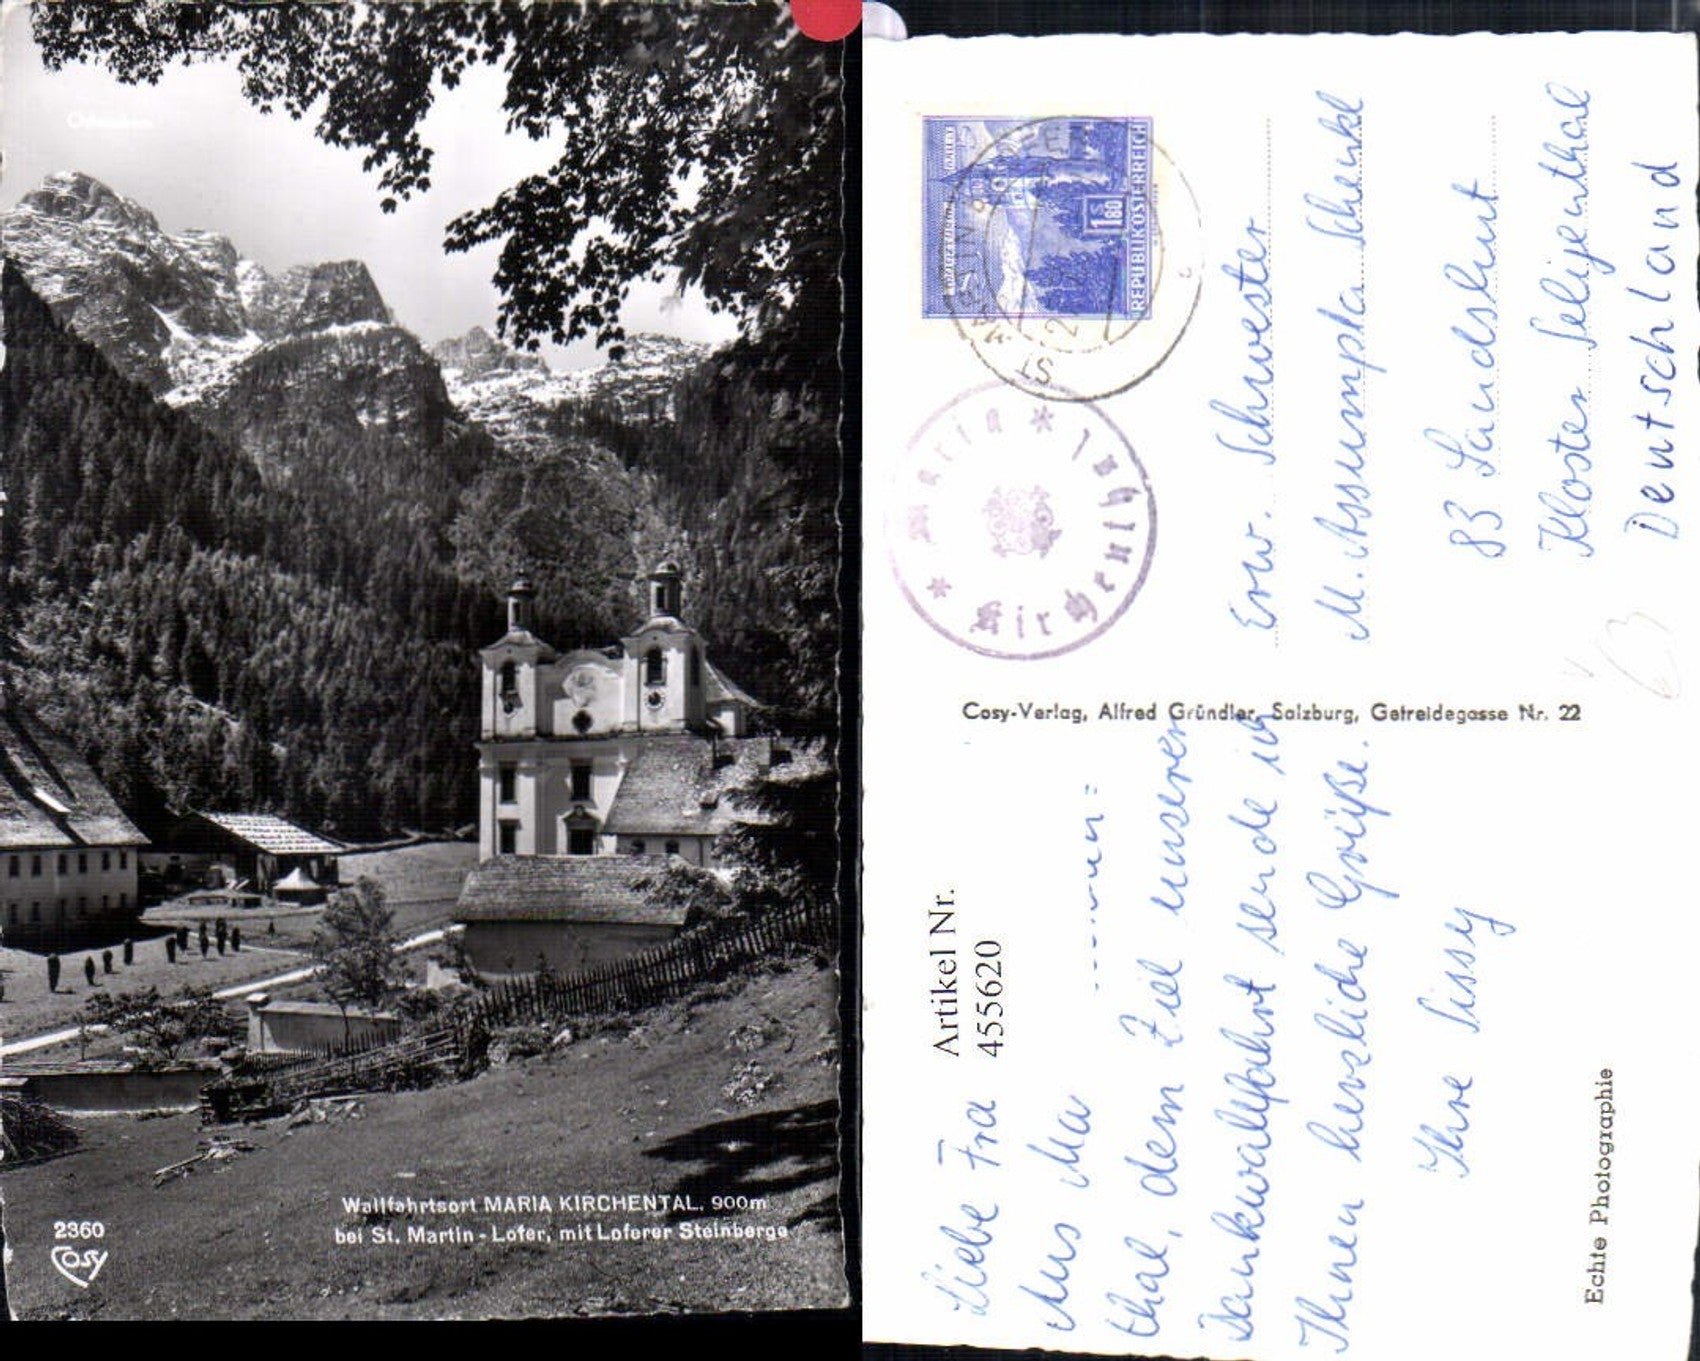 Wallfahrtsort MARIA KIRCHENTAL, 900m
bei St. Martin - Lofer, mit Loferer Steinberge
2360
Cosy
REPUBLIK ÖSTERREICH
S 1.80
ST
Maria
Kirchenth
Erw. Schwester
M. Assumpta Schenkl
83 Landshut
Kloster Seligenthal
Deutschland
Cosy-Verlag, Alfred Gründler, Salzburg, Getreidegasse Nr. 22
Artikel Nr.
455620
Liebe Fra
Aus Ma
thal, dem Ziel unserer
Dankwallfahrt sende ich
Ihnen herzliche Grüße.
Ihre Sissy
Echte Photographie